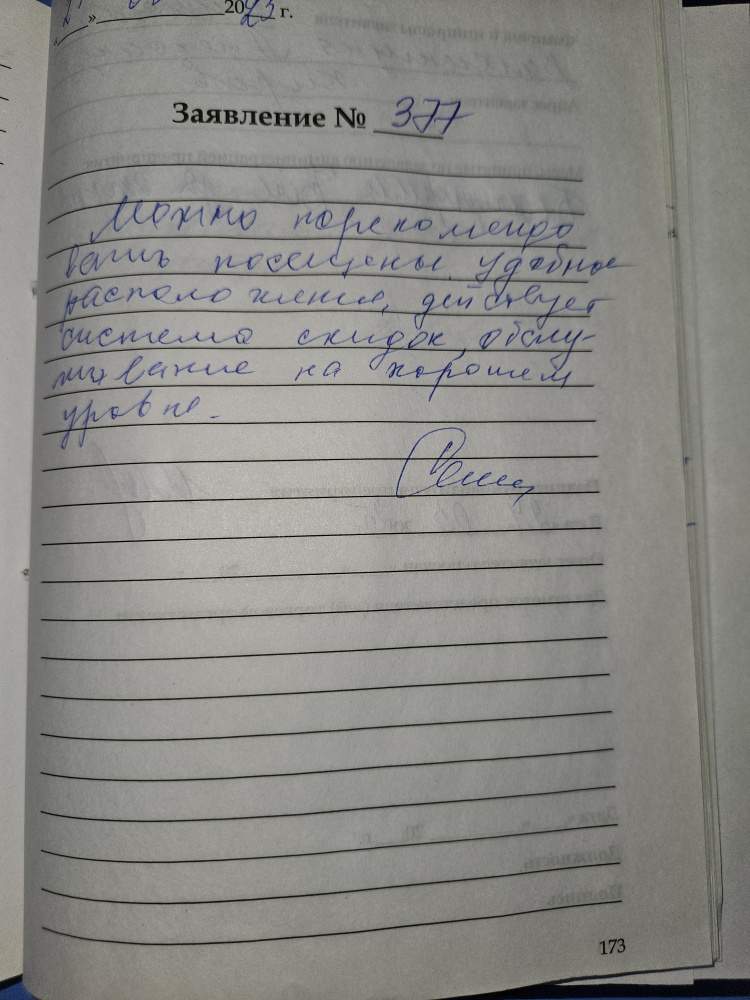 2023 г.
Заявление № 377
Можно порекомендо
вать посещены, удобное
расположения, действует
система скидок, обслу-
живание на хорошем
уровне.
173